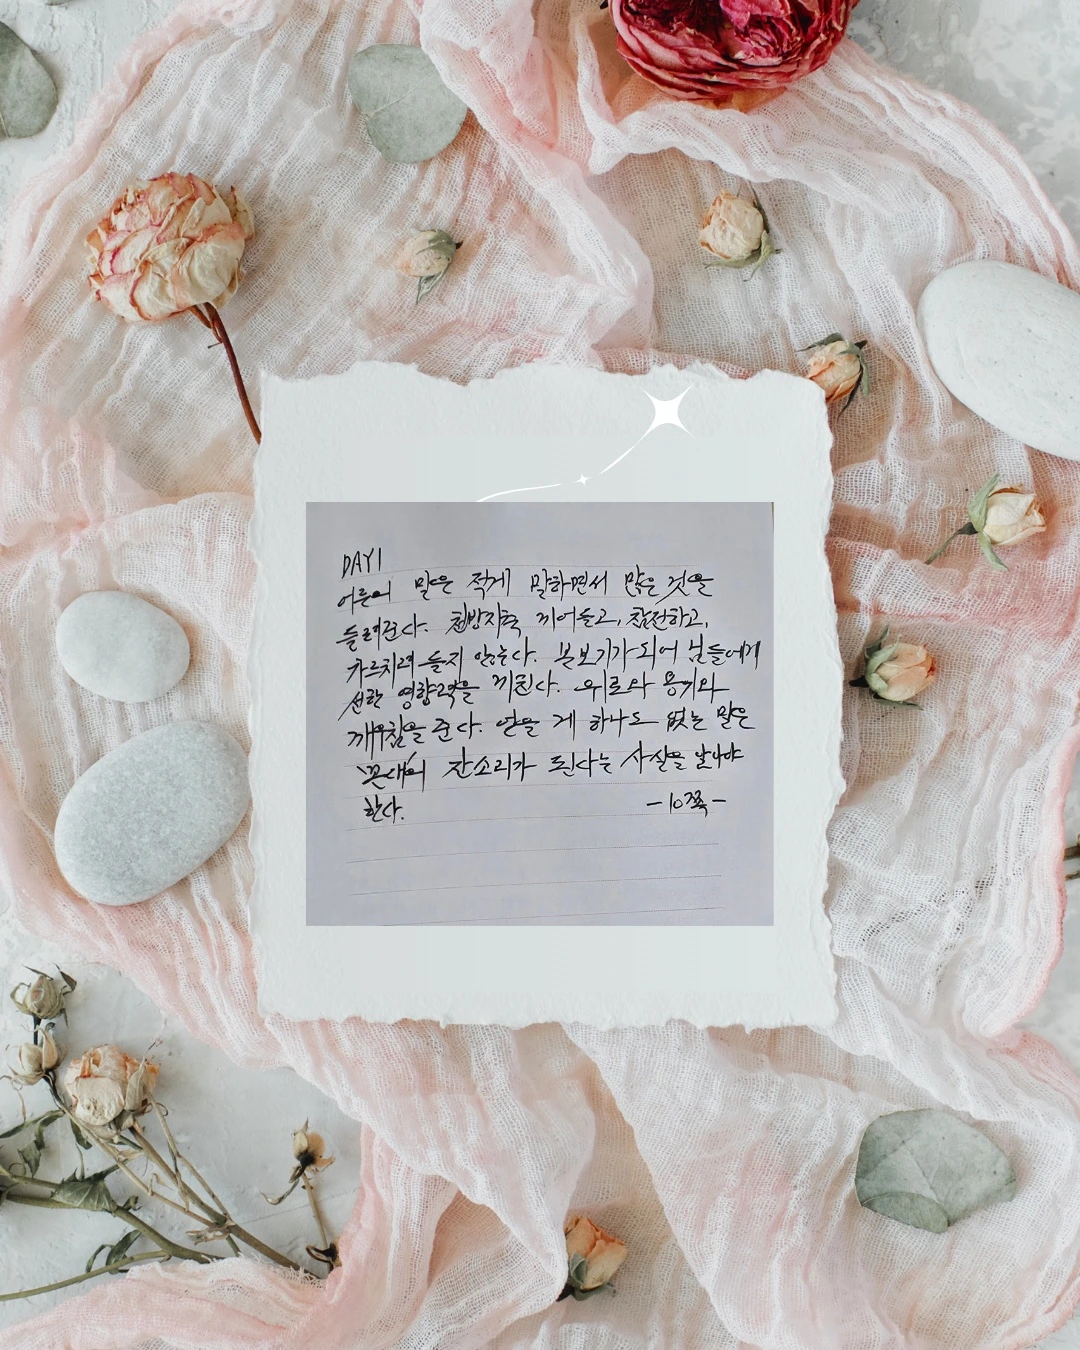 DAY1
어른의 말은 적게 말하면서 많은 것을
들려준다. 천방지축 끼어들고, 참전하고,
가르치려 들지 않는다. 본보기가 되어 남들에게
선한 영향력을 끼친다. 위로와 용기와
깨우침을 준다. 얻을 게 하나도 없는 말은
꼰대의 잔소리가 된다는 사실을 알아야
한다. -10쪽-